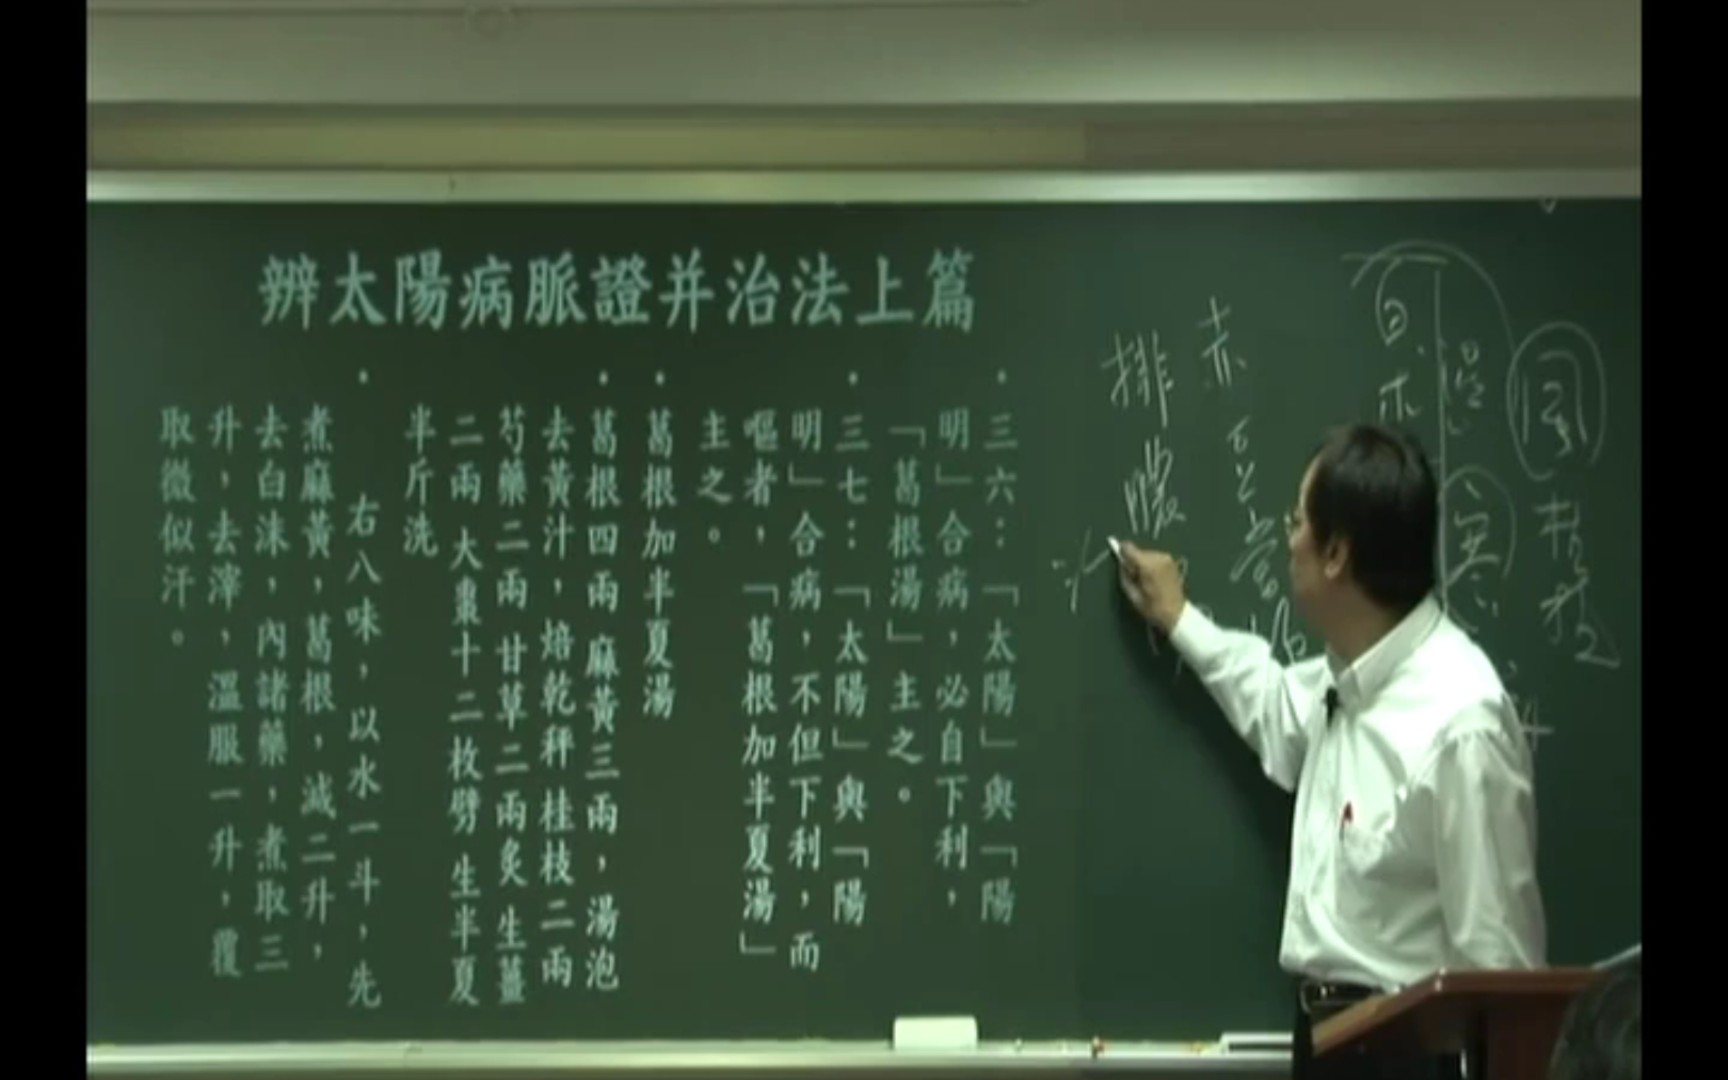 辨太陽病脈證并治法上篇
• 三六：「太陽」與「陽
明」合病，必自下利，
「葛根湯」主之。
• 三七：「太陽」與「陽
明」合病，不但下利，而
嘔者，「葛根加半夏湯」
主之。
• 葛根加半夏湯
• 葛根四兩 麻黃三兩，湯泡
去黃汁，焙乾秤 桂枝二兩
芍藥二兩 甘草二兩炙 生薑
二兩 大棗十二枚劈 生半夏
半斤洗
• 右八味，以水一斗，先
煮麻黃，葛根，減二升，
去白沫，內諸藥，煮取三
升，去滓，溫服一升，覆
取微似汗。
風
桂枝
濕
寒
白朮
赤豆當歸
排膿